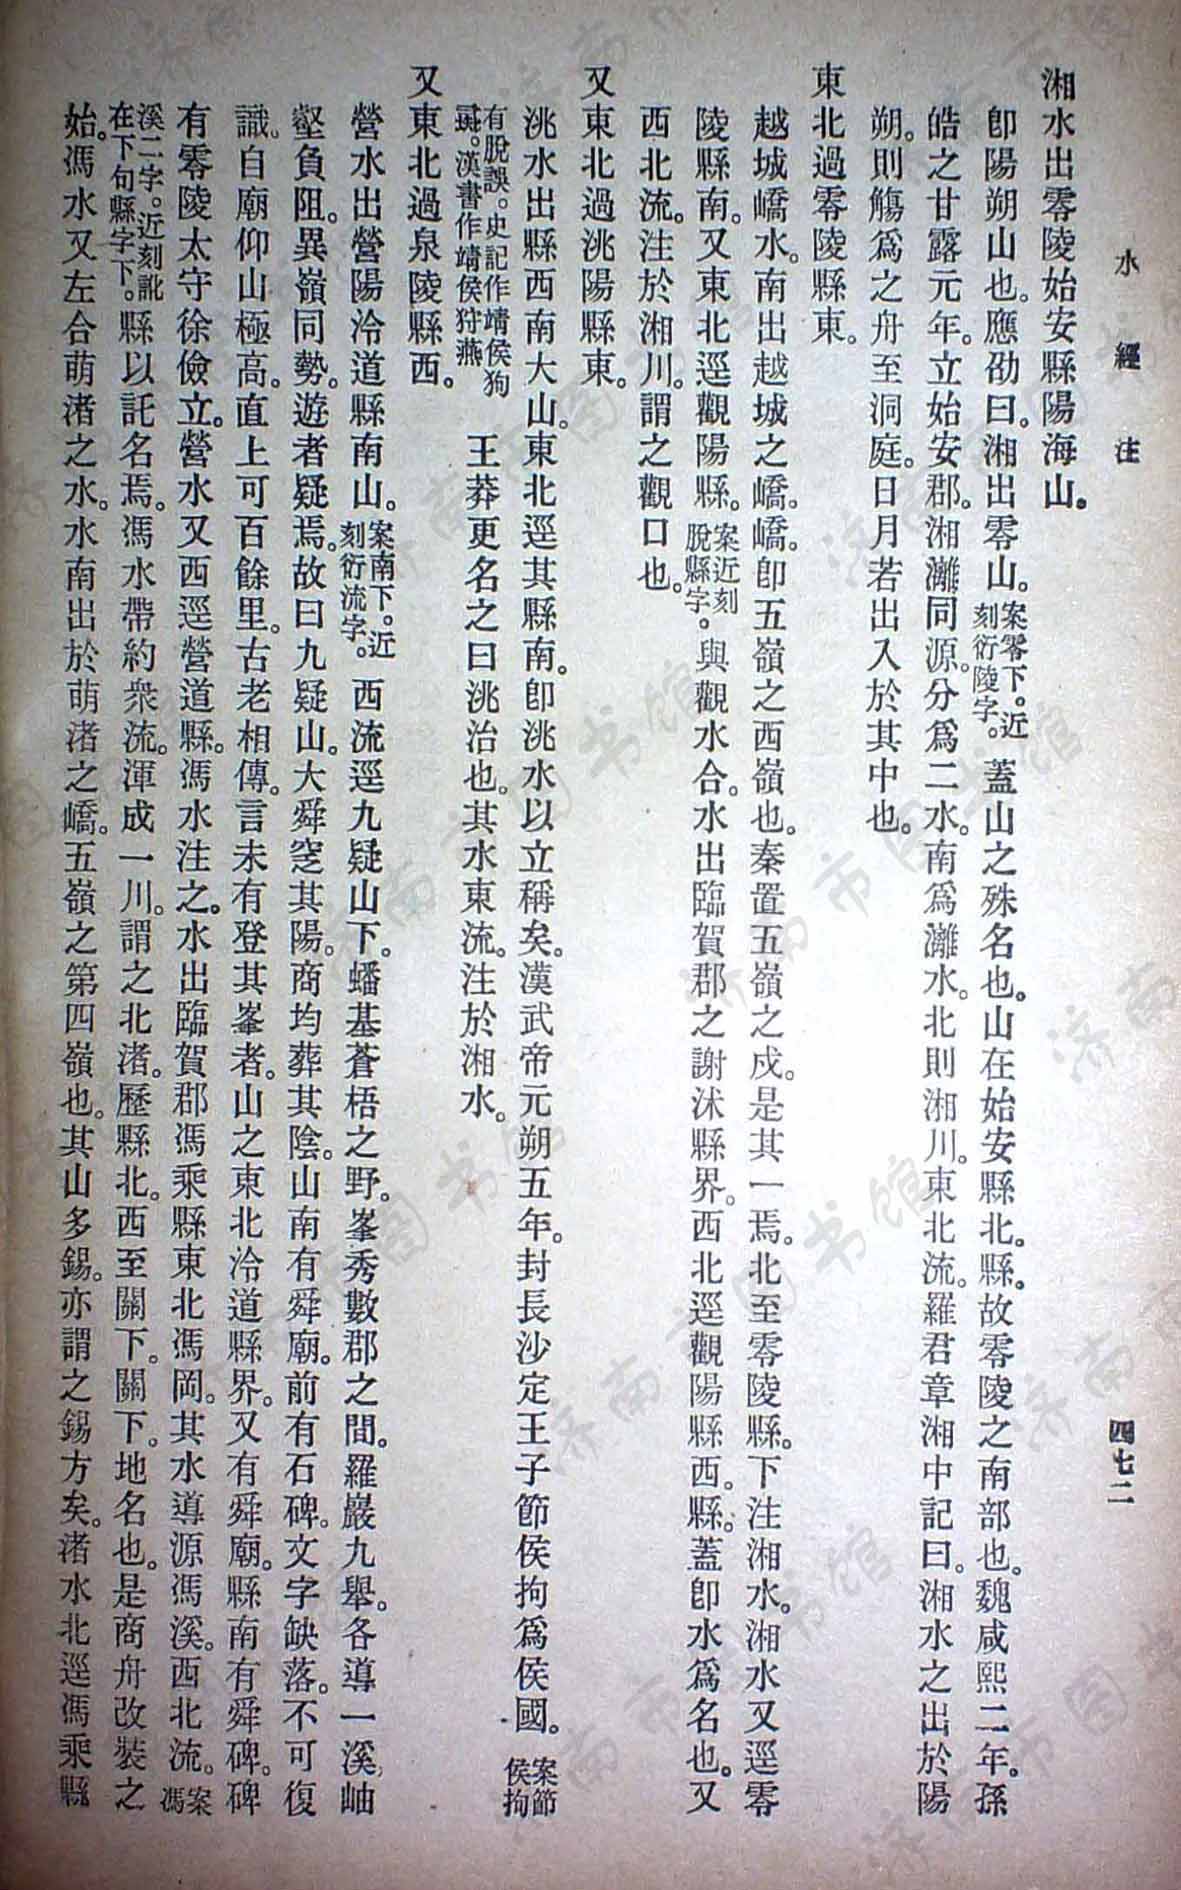 水經注
四七二
湘水出零陵始安縣陽海山。
卽陽朔山也。應劭曰。湘出零山。案零下。近刻衍陵字。蓋山之殊名也。山在始安縣北。縣。故零陵之南部也。魏咸熙二年。孫
皓之甘露元年。立始安郡。湘灕同源。分爲二水。南爲灕水。北則湘川。東北流。羅君章湘中記曰。湘水之出於陽
朔。則觴爲之舟至洞庭。日月若出入於其中也。
東北過零陵縣東。
越城嶠水。南出越城之嶠。嶠。卽五嶺之西嶺也。秦置五嶺之戍。是其一焉。北至零陵縣。下注湘水。湘水又逕零
陵縣南。又東北逕觀陽縣。案近刻脫縣字。與觀水合。水出臨賀郡之謝沭縣界。西北逕觀陽縣西。縣。蓋卽水爲名也。又
西北流。注於湘川。謂之觀口也。
又東北過洮陽縣東。
洮水出縣西南大山。東北逕其縣南。卽洮水以立稱矣。漢武帝元朔五年。封長沙定王子節侯拘爲侯國。案節侯拘
有脫誤。史記作靖侯狗彘。漢書作靖侯狩燕 王莽更名之曰洮治也。其水東流。注於湘水。
又東北過泉陵縣西。
營水出營陽泠道縣南山。案南下。近刻衍流字。西流逕九疑山下。蟠基蒼梧之野。峯秀數郡之間。羅巖九舉。各導一溪。岫
壑負阻。異嶺同勢。遊者疑焉。故曰九疑山。大舜窆其陽。商均葬其陰。山南有舜廟。前有石碑。文字缺落。不可復
識。自廟仰山極高。直上可百餘里。古老相傳。言未有登其峯者。山之東北泠道縣界。又有舜廟。縣南有舜碑。碑
有零陵太守徐儉立。營水又西逕營道縣。馮水注之。水出臨賀郡馮乘縣東北馮岡。其水導源馮溪。西北流。案馮
溪二字。近刻訛在下句縣字下。縣以託名焉。馮水帶約衆流。渾成一川。謂之北渚。歷縣北。西至關下。關下。地名也。是商舟改裝之
始。馮水又左合萌渚之水。水南出於萌渚之嶠。五嶺之第四嶺也。其山多錫。亦謂之錫方矣。渚水北逕馮乘縣